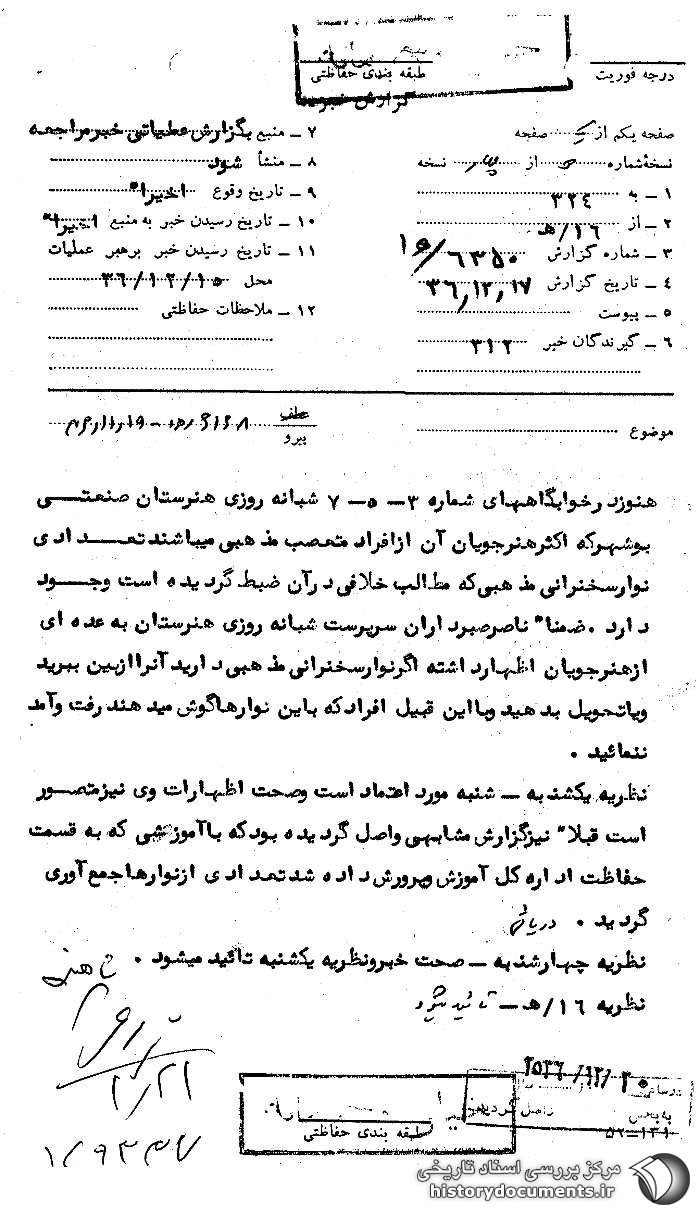 طبقه بندی حفاظتی
درجه فوریت
گزارش خبر
صفحه یکم از یک صفحه
نسخه شماره از نسخه
۱ ـ به ۳۲٤
۲ ـ از ۱۶/هـ
۳ ـ شماره گزارش ۱۶/۶۳۵۰
٤ ـ تاریخ گزارش ۳۶٫۱۲٫۱۷
۵ ـ پیوست
۶ ـ گیرندگان خبر ۳۱۲
۷ ـ منبع بگزارش عملیاتی خبر مراجعه
۸ ـ منشأ شود
۹ ـ تاریخ وقوع اخیرا"
۱۰ ـ تاریخ رسیدن خبر به منبع اخیرا"
۱۱ ـ تاریخ رسیدن خبر برهبر عملیات
محل ۳۶/۱۲/۱۵
۱۲ ـ ملاحظات حفاظتی
موضوع
عطف
پیرو
هنوزد رخوابگاههای شماره ۳ ـ ۵ ـ ۷ شبانه روزی هنرستان صنعتی
بوشهرکه اکثرهنرجویان آن ازافراد متعصب مذ هبی میباشند تعـداد ی
نوارسخنرانی مذ هبی که مطالب خلافی د رآن ضبط گرد ید ه است وجـود
د ارد . ضمنا" ناصرصبرد اران سرپرست شبانه روزی هنرستان به عده ای
ازهنرجویان اظهارد اشته اگرنوارسخنرانی مذ هبی د ارید آنراازبین ببرید
ویاتحویل بد هید وبااین قبیل افراد که باین نوارهاگوش مید هند رفت وآمد
ننمائید .
نظریه یکشنبه ـ شنبه مورد اعتماد است وصحت اظهارات وی نیزمتصور
است قبلا" نیزگزارش مشابهی واصل گرد ید ه بود که باآموزشی که به قسمت
حفاظت اد اره کل آموزش وپرورش د اد ه شد تعد اد ی ازنوارهاجمع آوری
گرد ید . دریائی
نظریه چهارشنبه ـ صحت خبرونظریه یکشنبه تائید میشود .
نظریه ۱۶/هـ ـ تائید میشود
۲۵۳۶/۱۲/۲۰
واصل گردید
طبقه بندی حفاظتی
مرکز بررسی اسناد تاریخی
historydocuments.ir